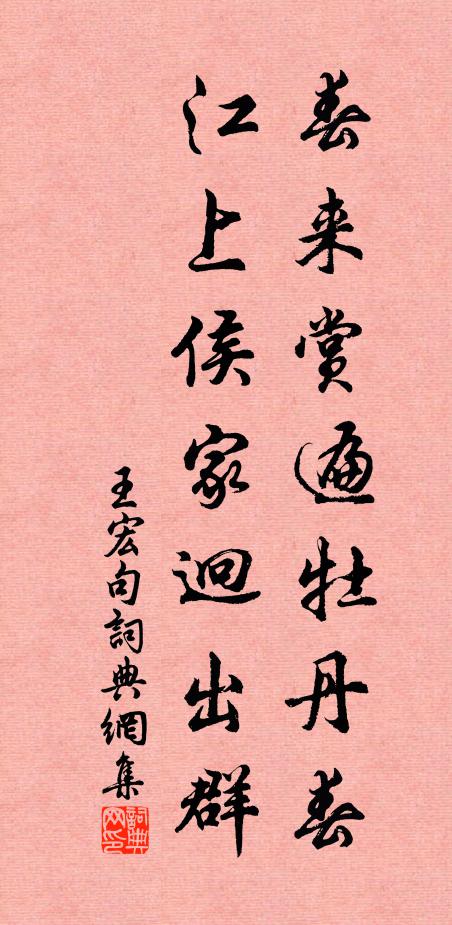 春来赏遍牡丹春
江上侯家迥出群
王宏句詞典網集
詞典網印